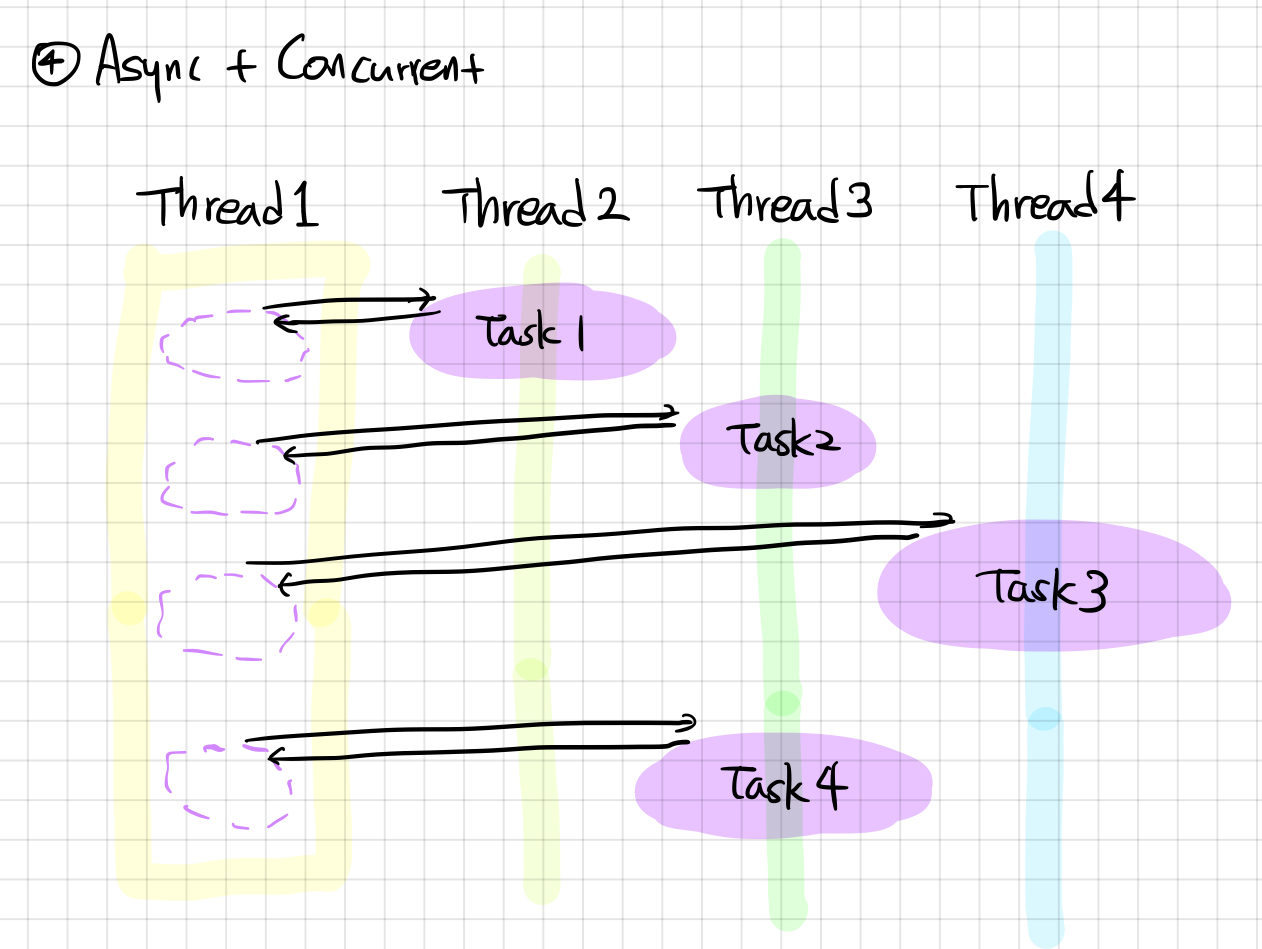 ④ Async + Concurrent
Thread1 Thread2 Thread3 Thread4
Task 1
Task2
Task3
Task4